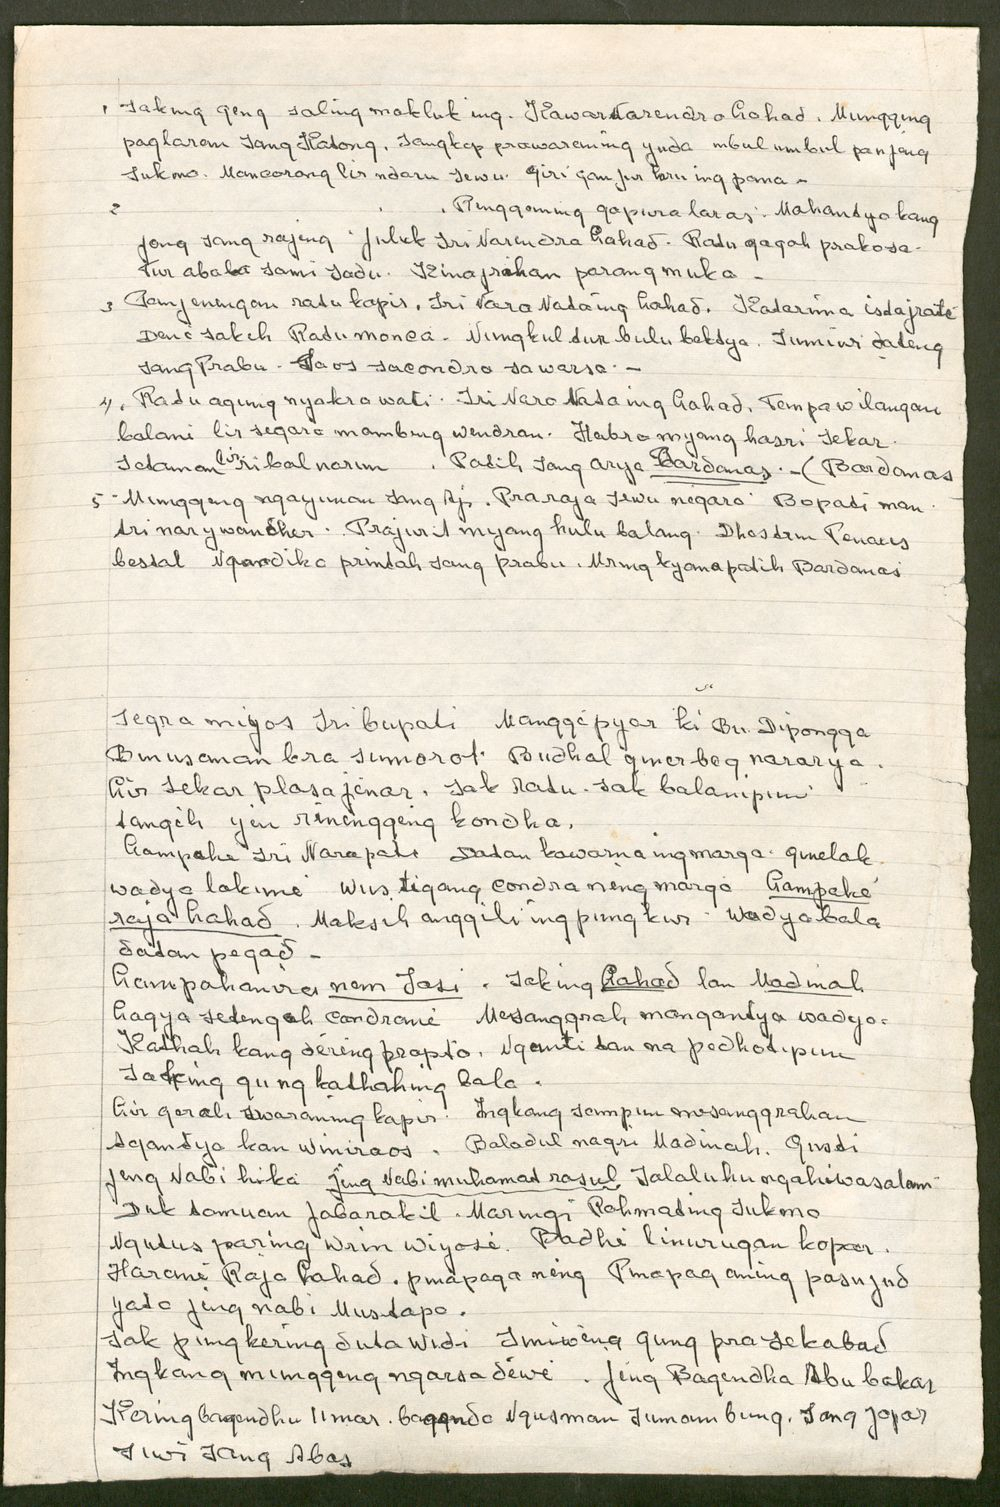 1 Saking geng saling makluk ing. Kawar Narendra Lahad. Mungging
paglaran Sang Katong. Sangkep prawarening yuda mbul umbul panjang
Sukmo. Mancorong lir ndaru Sewu. Giri gunjur ing pama -
2 . . Renggening gapura laras. Mahantya kang
jeng sang rajeng Juluk Sri Narendra Lahad. Ratu gagah prakosa.
Tur abala sami sadu. Kinajrihan parangmuka -
3 Panjenengan ratu kapir, Sri Nara Nata ing Lahad. Katarima isdajrate
Dene sakeh Ratu monca. Nungkul sun bulu bektya. Sumiwi dateng
sang Prabu. Saos sacondro sawarsa. -
4, Ratu agung nyakrawati. Sri Nara Nata ing Lahad, Tempa wilangan
balani lir segara mambeg wendran. Habra myang hasri Sekar.
Setaman lir ribal narun . Patih Sang Arya Bardanas. - ( Bardanas
5 - Mungggeng ngayunan Sang Aji. Praraja sewu negara Bopati man
tri nary wandher. Prajurit myang hulu balang. Dhostrin Penatus
bestal Ngandika printah sang prabu. Mring kyana patih Bardanas
Segra miyos Sri bupati Manggepyar ki Bu. Dipongga
Binusanan bra sumorot. Budhal ginerbeg nararya.
Lir Sekar plasa jenar. Sak ratu. sak balanipun
tangeh yen rinenggeng kondha.
Lampahe Sri Narapati Datan kawarna ing marga. ginelak
wadya lakune Wus tigang condra neng margo Lampahe
raja Lahad. Maksih anggili ing pungkur. Wadya bala
datan pegad -
Lampahanira nem Sasi . Saking Lahad lan Madinah
Lagya setengah condrane Mesanggrah mangantya wadyo.
Kathah kang dereng prapto. Nganti tan na pedhotipun
Saking gung kathahing bala.
Lir gerah swaraning kapir. Ingkang sampun mosanggrahan
Sgantya kan winiraos. Baladul nagri Madinah. Gusti
Jeng Nabi hika jeng Nabi muhamad rasul Salaluhu ngahiwasalam
Duk tamuan Jabarakil. Maringi Rohmating Sukmo
Ngutus paring wrin wiyose. Badhe linurugan kopar.
Harane Raja Lahad. pmapaga neng Pmapag aning pasujud
yata jeng nabi Mustapa.
Sak pungkering duta Widi Smiweng gung pra sekabad
Ingkang mungggeng ngarsa dewe . Jeng Bagendha Abu bakar
Kering bagendhu Umar. baganda Ngusman Sumambung. Sang Japar
Siwi Sang Abas